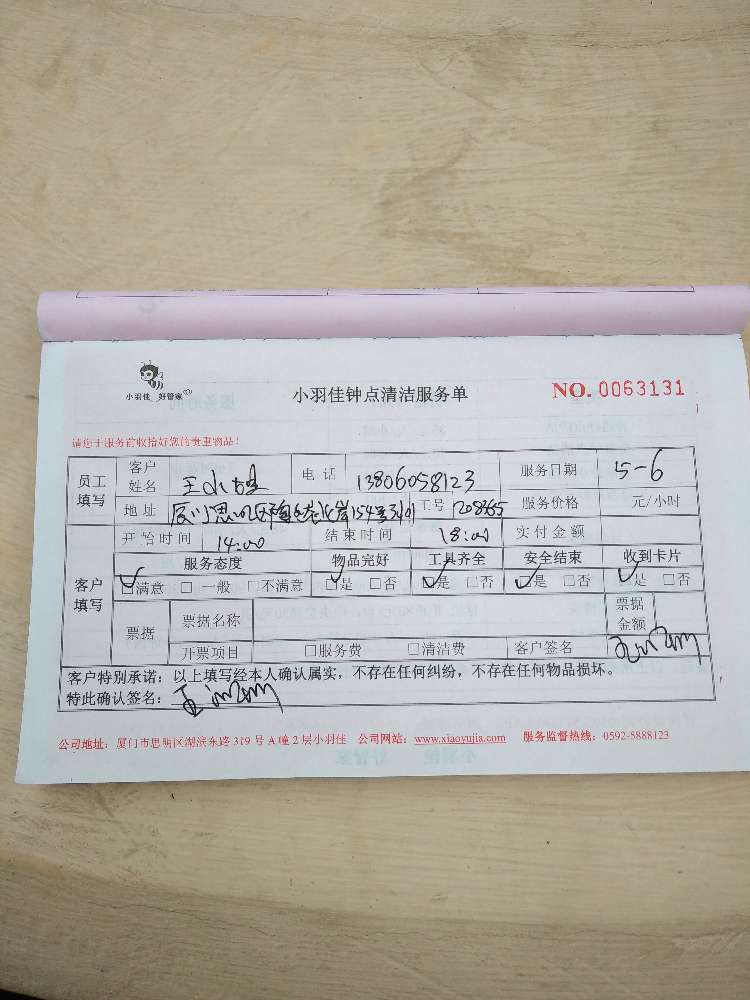 小羽佳 好管家
小羽佳钟点清洁服务单
NO. 0063131
请您于服务前收拾好您的贵重物品!
员工填写 客户姓名 王小姐 电话 13806058123 服务日期 5-6
地址 厦门思明区 北岸154 工号 208365 服务价格 元/小时
客户填写 开始时间 14:00 结束时间 18:00 实付金额
服务态度 物品完好 工具齐全 安全结束 收到卡片
☑满意 □一般 □不满意 ☑是 □否 ☑是 □否 ☑是 □否 ☑是 □否
票据 票据名称 票据金额
开票项目 □服务费 □清洁费 客户签名
客户特别承诺：以上填写经本人确认属实，不存在任何纠纷，不存在任何物品损坏。
特此确认签名：
公司地址：厦门市思明区湖滨东路319号A幢2层小羽佳 公司网站：www.xiaoyujia.com 服务监督热线：0592-5888123